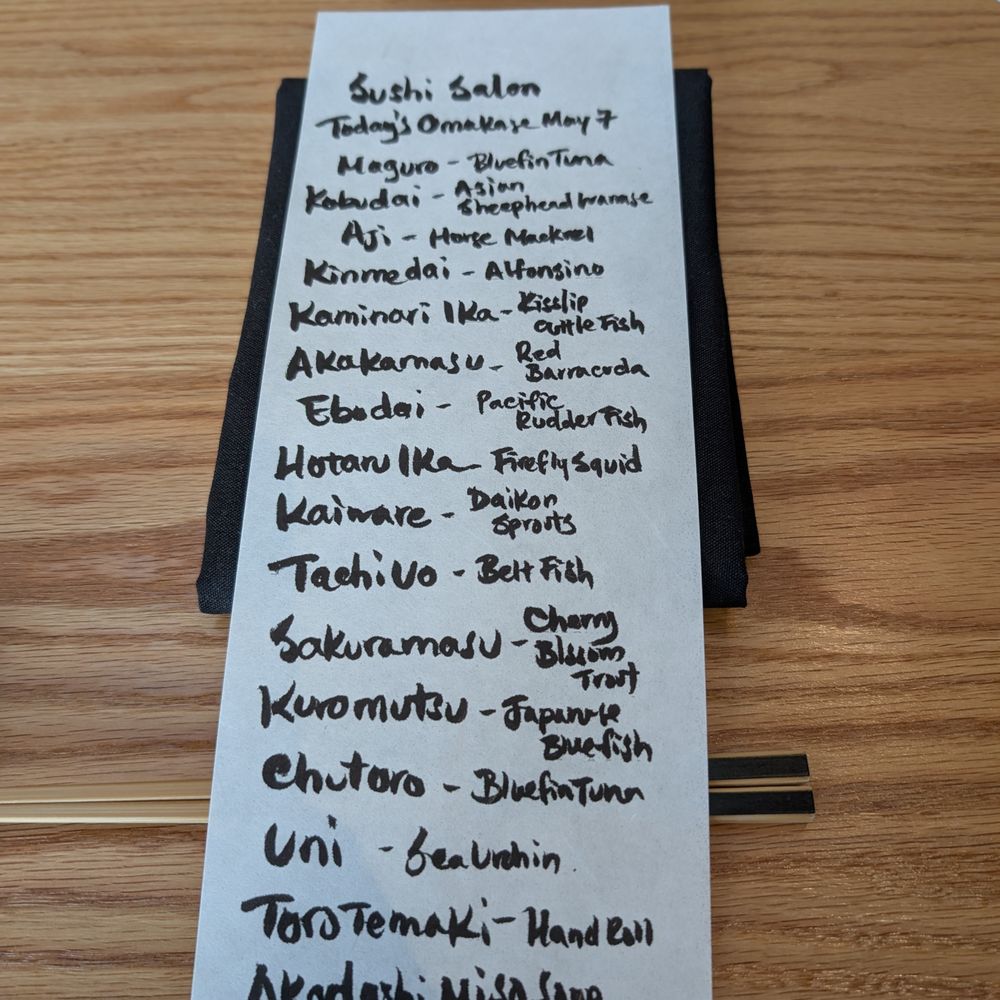 Sushi Salon
Today's Omakase May 7
Maguro - Bluefin Tuna
Kobudai - Asian
Sheephead Wrasse
Aji - Horse Mackrel
Kinmedai - Alfonsino
Kaminari Ika - Kisslip
cuttle Fish
Akakamasu - Red
Barracuda
Ebodai - Pacific
Rudder Fish
Hotaru Ika - Firefly Squid
Kaiware - Daikon
Sprouts
Tachiuo - Belt Fish
Sakuramasu - Cherry
Blossom
Trout
Kuromutsu - Japanese
Bluefish
Chutoro - Bluefin Tuna
Uni - Sea Urchin
Toro Temaki - Hand Roll
Akadashi Miso Soup